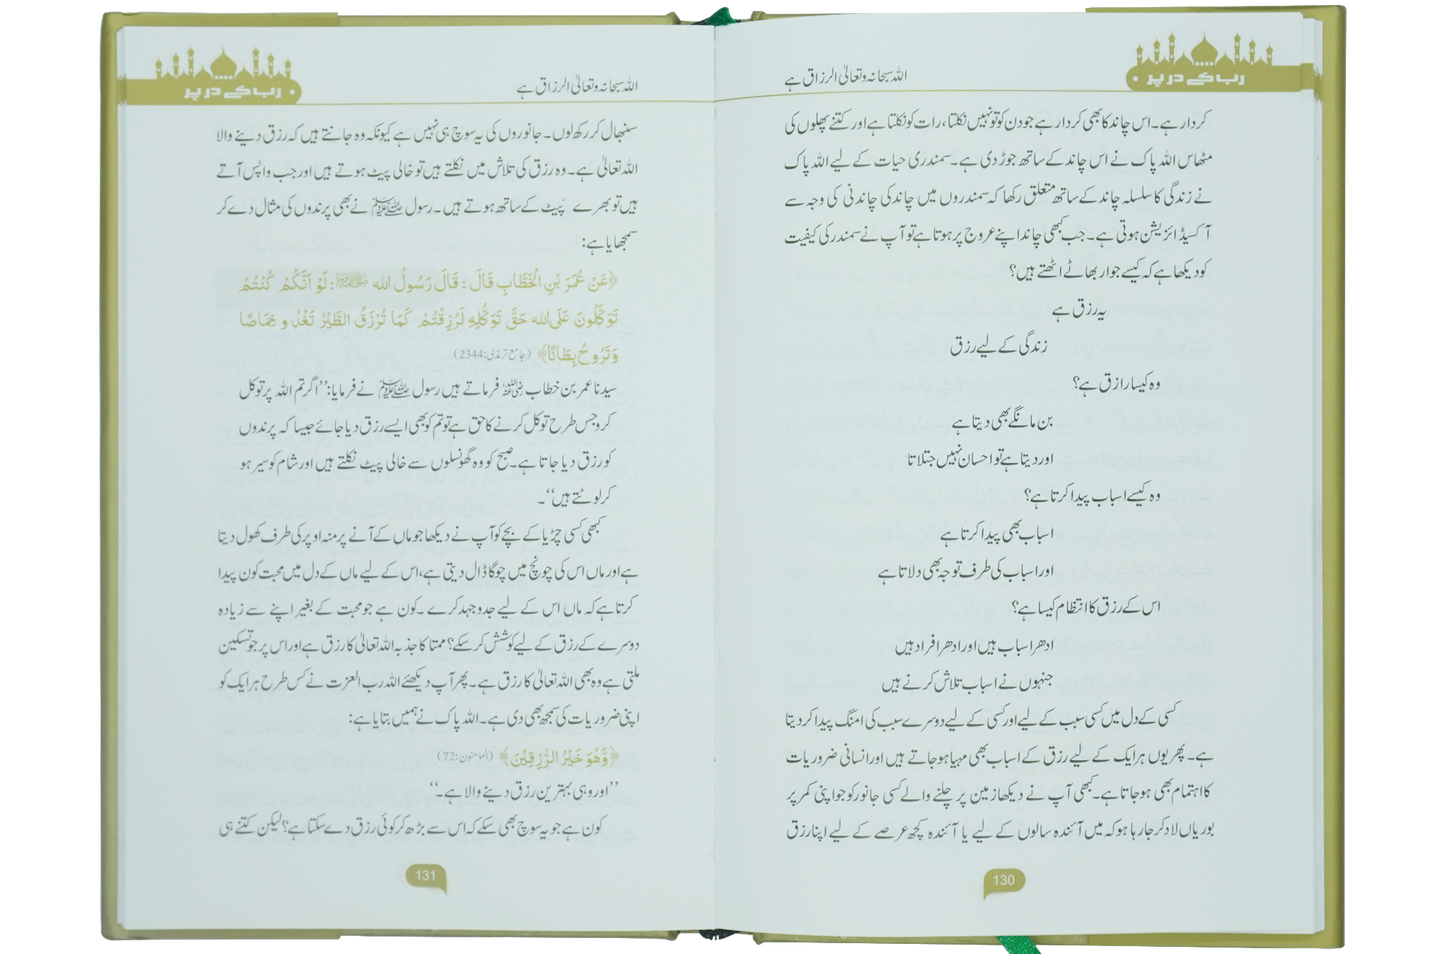 رب کے در پر
اللہ سبحانہ و تعالیٰ الرزاق ہے
کردار ہے۔ اس چاند کا بھی کردار ہے جو دن کو تو نہیں نکلتا، رات کو نکلتا ہے اور کتنے پھلوں کی
مٹھاس اللہ پاک نے اس چاند کے ساتھ جوڑ دی ہے۔ سمندری حیات کے لیے اللہ پاک
نے زندگی کا سلسلہ چاند کے ساتھ متعلق رکھا کہ سمندروں میں چاند کی چاندنی کی وجہ سے
آکسیڈائزیشن ہوتی ہے۔ جب کبھی چاند اپنے عروج پر ہوتا ہے تو آپ نے سمندر کی کیفیت
کو دیکھا ہے کہ کیسے جوار بھاٹے اٹھتے ہیں؟
یہ رزق ہے
زندگی کے لیے رزق
وہ کیسا رازق ہے؟
بن مانگے بھی دیتا ہے
اور دیتا ہے تو احسان نہیں جتلاتا
وہ کیسے اسباب پیدا کرتا ہے؟
اسباب بھی پیدا کرتا ہے
اور اسباب کی طرف توجہ بھی دلاتا ہے
اس کے رزق کا انتظام کیسا ہے؟
ادھر اسباب ہیں اور ادھر افراد ہیں
جنہوں نے اسباب تلاش کرنے ہیں
کسی کے دل میں کسی سبب کے لیے اور کسی کے لیے دوسرے سبب کی امنگ پیدا کر دیتا
ہے۔ پھر یوں ہر ایک کے لیے رزق کے اسباب بھی مہیا ہو جاتے ہیں اور انسانی ضروریات
کا اہتمام بھی ہو جاتا ہے۔ کبھی آپ نے دیکھا زمین پر چلنے والے کسی جانور کو جو اپنی کمر پر
بوریاں لاد کر جا رہا ہو کہ میں آئندہ سالوں کے لیے یا آئندہ کچھ عرصے کے لیے اپنا رزق
130
رب کے در پر
اللہ سبحانہ و تعالیٰ الرزاق ہے
سنبھال کر رکھ لوں۔ جانوروں کی یہ سوچ ہی نہیں ہے کیونکہ وہ جانتے ہیں کہ رزق دینے والا
اللہ تعالیٰ ہے۔ وہ رزق کی تلاش میں نکلتے ہیں تو خالی پیٹ ہوتے ہیں اور جب واپس آتے
ہیں تو بھرے پیٹ کے ساتھ ہوتے ہیں۔ رسول ﷺ نے بھی پرندوں کی مثال دے کر
سمجھایا ہے:
﴿عَنْ عُمَرَ بْنِ الْخَطَّابِ قَالَ: قَالَ رَسُولُ الله ﷺ: لَوْ اَنَّكُمْ كُنْتُمْ
تَوَكَّلُونَ عَلَى الله حَقَّ تَوَكُّلِهِ لَرُزِقْتُمْ كَمَا تُرْزَقُ الطَّيْرُ تَغْدُو خِمَاصًا
وَتَرُوحُ بِطَانًا﴾ (جامع ترمذی: 2344)
سیدنا عمر بن خطاب رضی اللہ عنہ فرماتے ہیں رسول ﷺ نے فرمایا: ’’اگر تم اللہ پر توکل
کرو جس طرح توکل کرنے کا حق ہے تو تم کو بھی ایسے رزق دیا جائے جیسا کہ پرندوں
کو رزق دیا جاتا ہے۔ صبح کو وہ گھونسلوں سے خالی پیٹ نکلتے ہیں اور شام کو سیر ہو
کر لوٹتے ہیں‘‘۔
کبھی کسی چڑیا کے بچے کو آپ نے دیکھا جو ماں کے آنے پر منہ اوپر کی طرف کھول دیتا
ہے اور ماں اس کی چونچ میں چوگا ڈال دیتی ہے، اس کے لیے ماں کے دل میں محبت کون پیدا
کرتا ہے کہ ماں اس کے لیے جدوجہد کرے۔ کون ہے جو محبت کے بغیر اپنے سے زیادہ
دوسرے کے رزق کے لیے کوشش کر سکے؟ ممتا کا جذبہ اللہ تعالیٰ کا رزق ہے اور اس پر جو تسکین
ملتی ہے وہ بھی اللہ تعالیٰ کا رزق ہے۔ پھر آپ دیکھئے اللہ رب العزت نے کس طرح ہر ایک کو
اپنی ضروریات کی سمجھ بھی دی ہے۔ اللہ پاک نے ہمیں بتایا ہے:
﴿وَّهُوَ خَيْرُ الرّٰزِقِيْنَ﴾ (المؤمنون: 72)
’’اور وہی بہترین رزق دینے والا ہے۔‘‘
کون ہے جو یہ سوچ بھی سکے کہ اس سے بڑھ کر کوئی رزق دے سکتا ہے؟ لیکن کتنے ہی
131